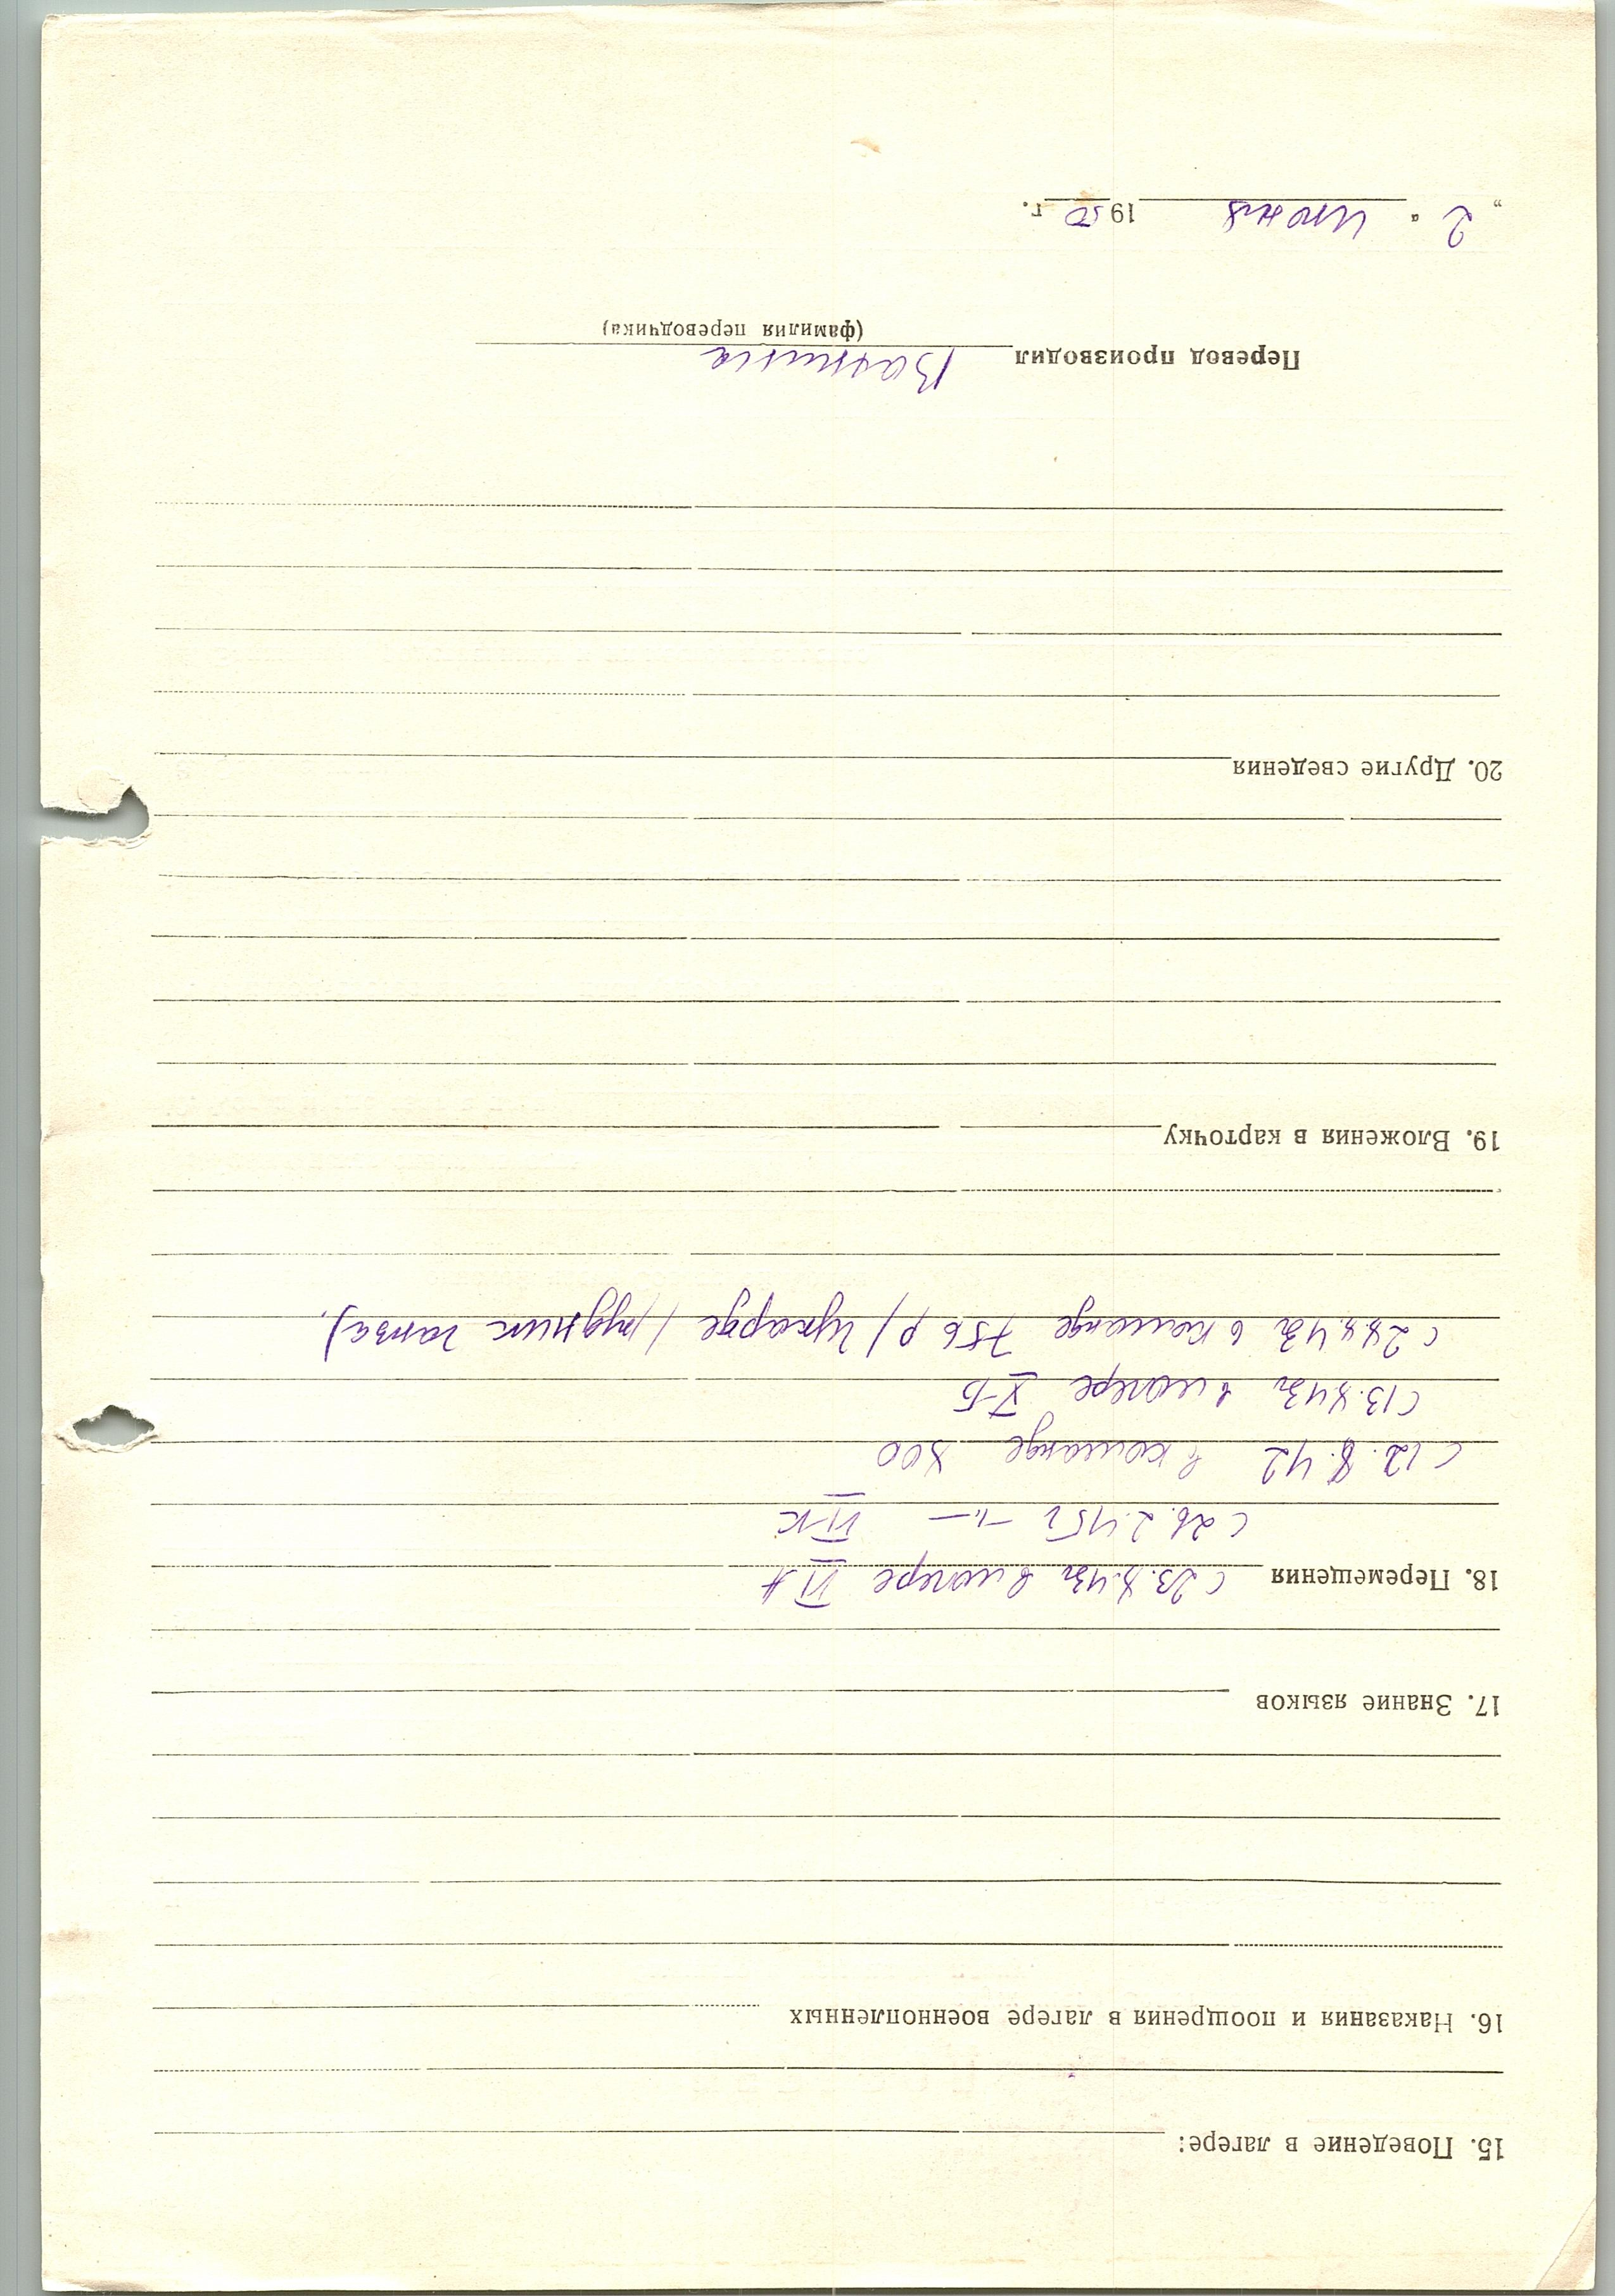 15. Поведение в лагере:
16. Наказания и поощрения в лагере военнопленных
17. Знание языков
18. Перемещения с 23.8.43г в лагере VI A
с 26.2.45г -"- VI К
с 12.8.42 в команде 800
с 13.8.43г в лагере X-Б
с 28.8.43г в команде 756 Р/ (рудник
19. Вложения в карточку
20. Другие сведения
Перевод производил Ванина
(фамилия переводчика)
„ 2 “ июня 1950 г.